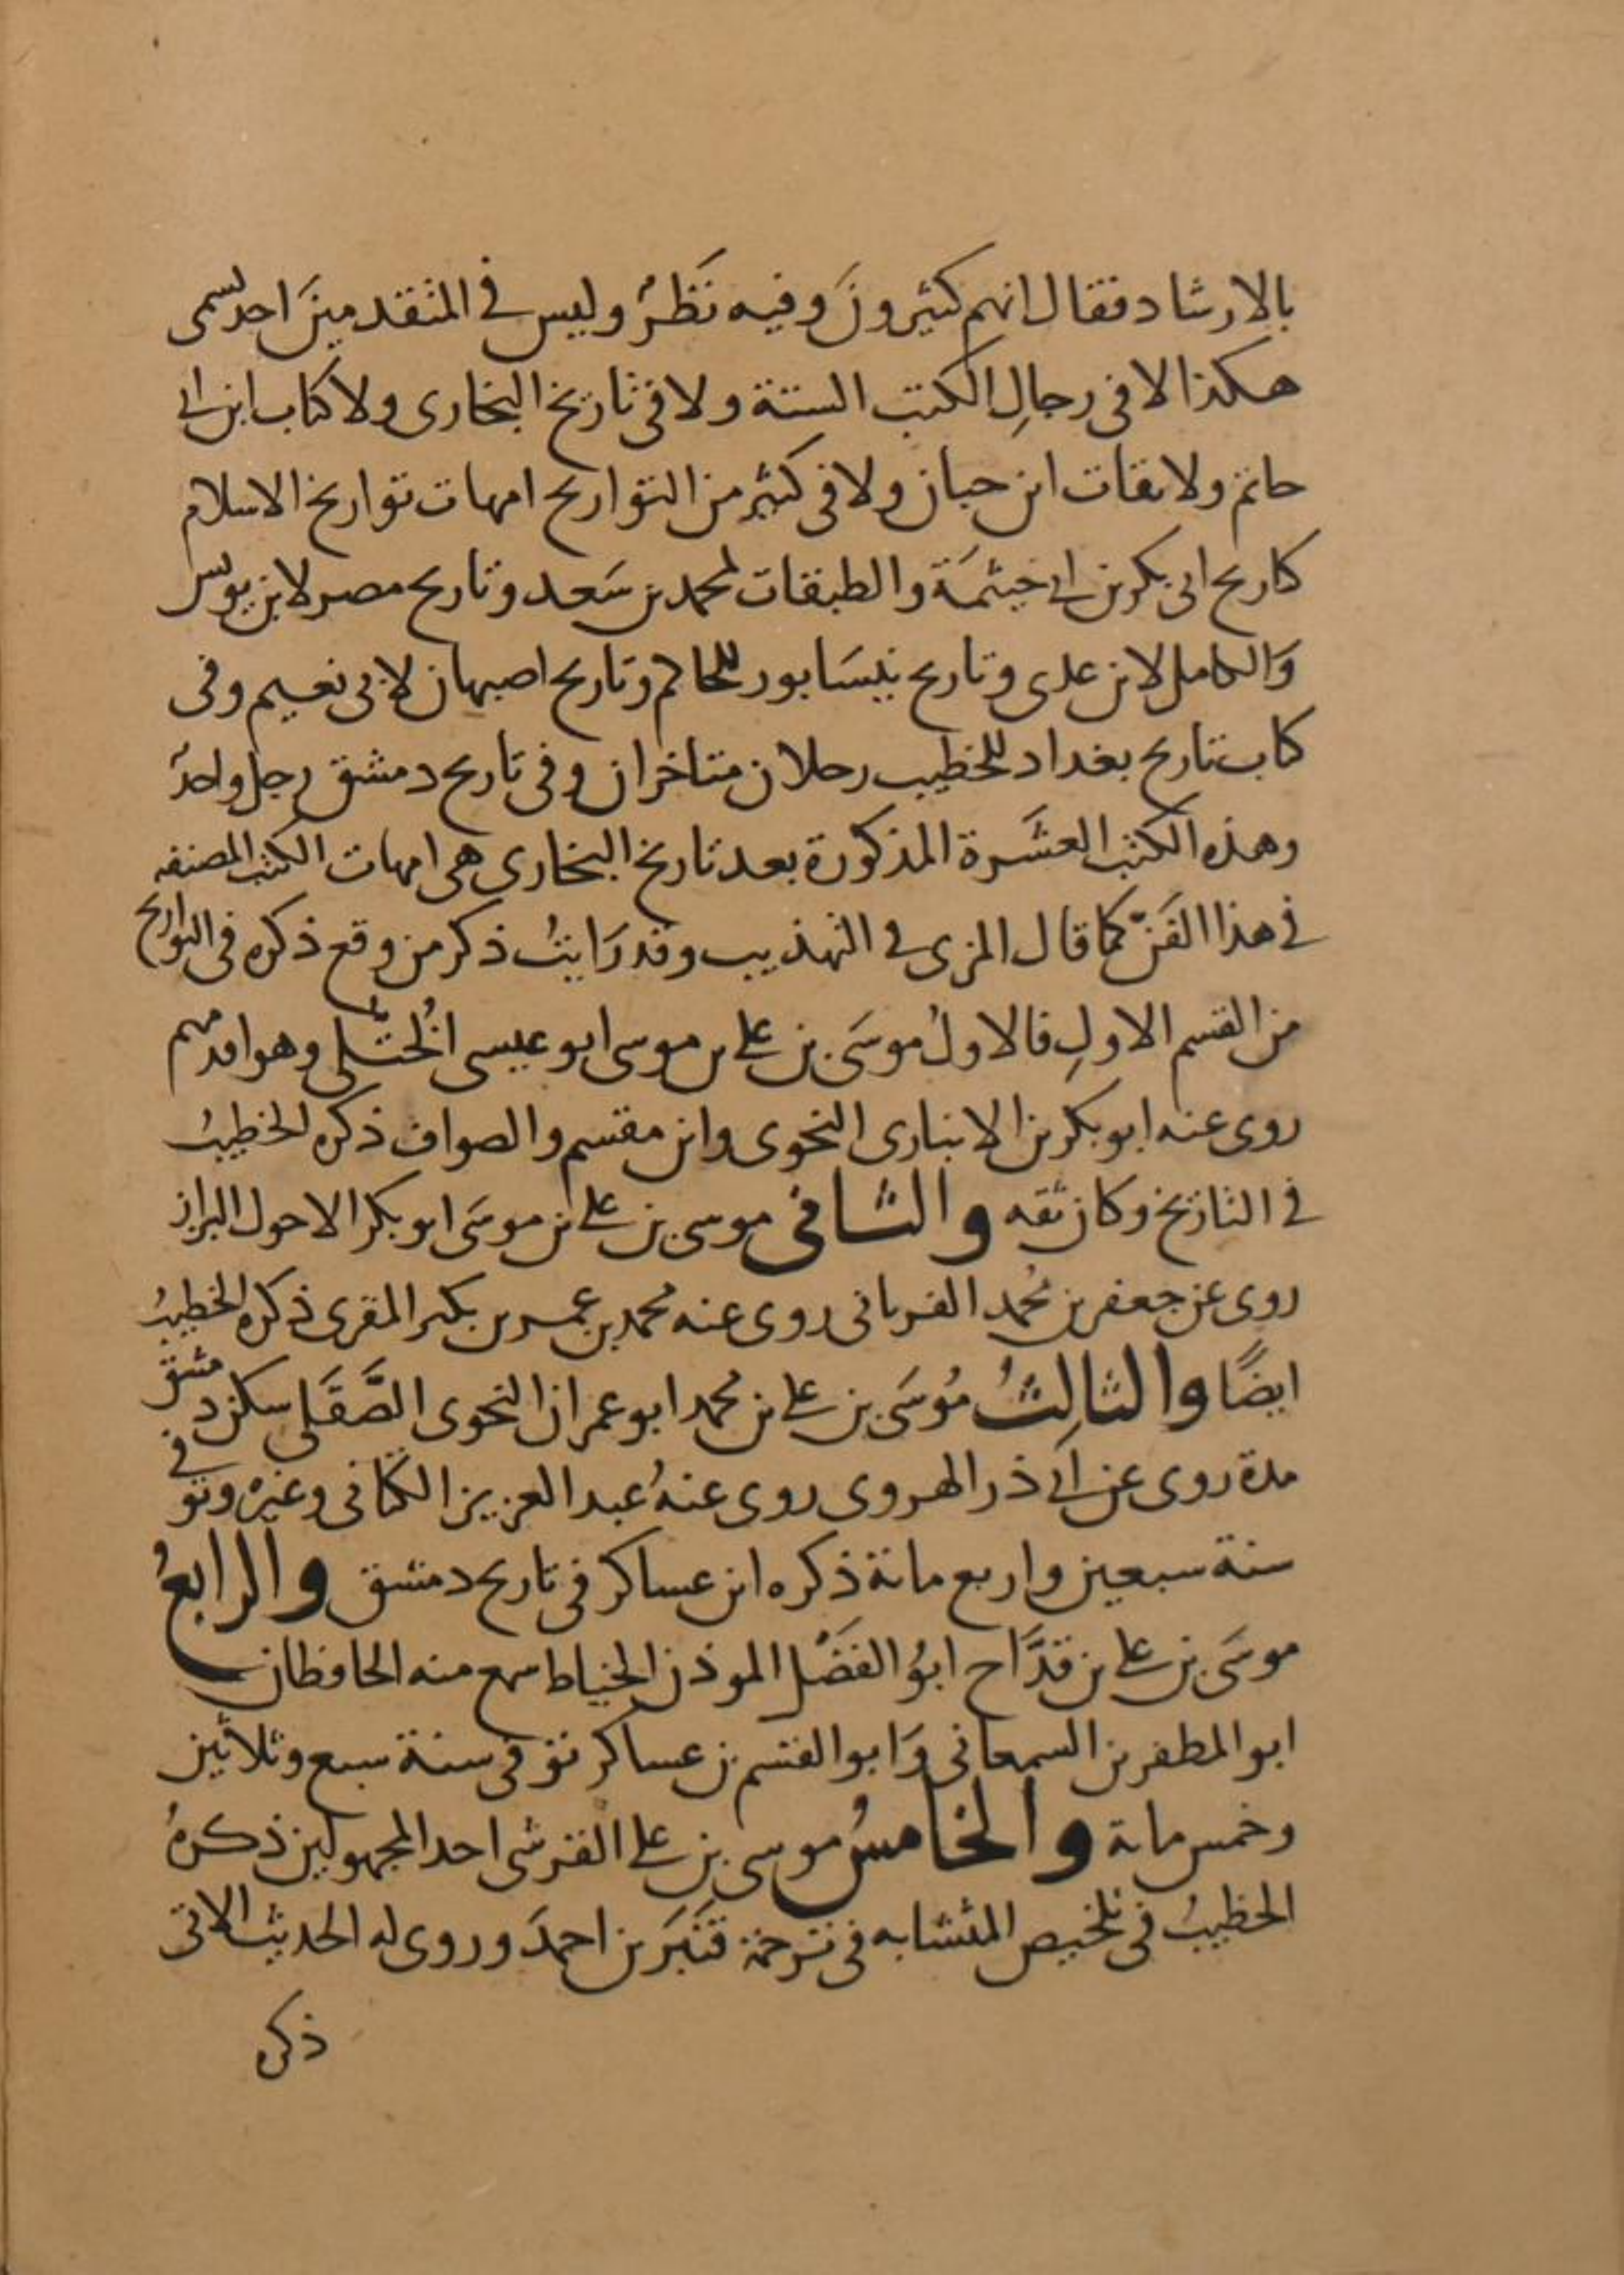 بالارشاد فقال انهم كثيرونَ وفيه نَظَرٌ وليس في المتقدمينَ احد يسمى
هكذا لا في رجالِ الكتب الستة ولا في تاريخ البخارى ولا كتاب ابن ابي
حاتم ولا ثقات ابن حبان ولا في كثير من التواريخ امهات تواريخ الاسلام
كتاريخ ابى بكر بن ابي خيثمَة والطبقات لمحمد بن سَعد وتاريخ مصر لابن يونس
وَالكامل لابن عدى وتاريخ نيسَابور للحاكم وتاريخ اصبهان لابى نعيم وفى
كتاب تاريخ بغداد للخطيب رجلان متاخران وفى تاريخ دمشق رجل واحدٌ
وهذه الكتب العشَرة المذكورة بعد تاريخ البخارى هى امهات الكتب المصنفه
في هذا الفَنّ كما قال المزى في التهذيب وقد رَايتُ ذكر من وقع ذكره فى التواريخ
من القسم الاولِ فالاولُ موسَى بن على بن موسى ابو عيسى الخُتَّلى وهو اقدمهم
روى عنه ابو بكر بن الانبارى النحوى وابن مقسم والصواف ذكره الخطيبُ
في التاريخ وكان ثقه والثانى موسى بن على بن موسَى ابو بكر الاحول البزاز
روى عن جعفر بن محُمد الفريابى روى عنه محمد بن عمر بن بكير المقرى ذكره الخطيبُ
ايضًا والثالِثُ مُوسَى بن على بن محمد ابو عمران النحوى الصَّقَلى سكن دمشق
مدة روى عن ابي ذر الهروى روى عنهُ عبد العزيز الكتانى وغيره وتوفي
سنة سبعين واربع مائة ذكره ابن عساكر فى تاريخ دمشق والرابعُ
موسَى بن على بن قدَّاح ابوُ الفضَل الموذن الخياط سمع منه الحافظان
ابو المظفر بن السمعانى وَابو القسم بن عساكر توفى سنة سبع وثلاثين
وخمس مائة والخامسُ موسى بن على القرشى احد المجهولين ذكرهُ
الخطيبُ فى تلخيص المتشابه فى ترجمة قَنبَر بن احمدَ وروى له الحديث الاتى
ذكره